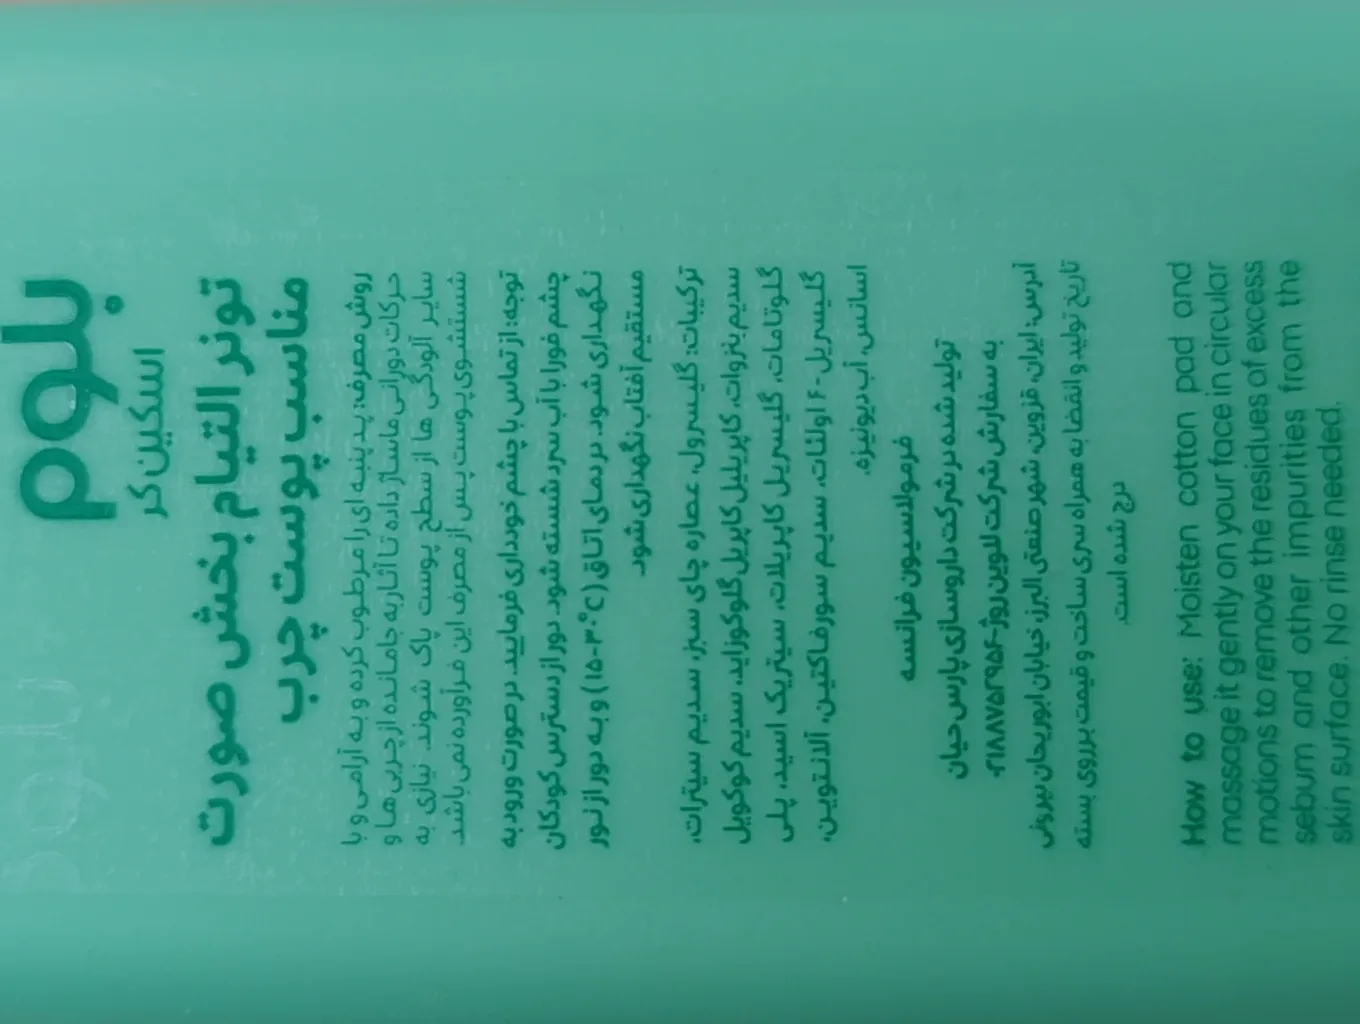 بلوم
اسکین کر
تونر التیام بخش صورت
مناسب پوست چرب
روش مصرف: پد پنبه ای را مرطوب کرده و به آرامی و با
حرکات دورانی ماساژ داده تا آثار به جامانده از چربی ها و
سایر آلودگی ها از سطح پوست پاک شوند. نیازی به
شستشوی پوست پس از مصرف این فرآورده نمی باشد.
توجه: از تماس با چشم خودداری فرمایید. در صورت ورود به
چشم فورا با آب سرد شسته شود. دور از دسترس کودکان
نگهداری شود. در دمای اتاق (۱۵-۳۰°C) و به دور از نور
مستقیم آفتاب نگهداری شود.
ترکیبات: گلیسرول، عصاره چای سبز، سدیم سیترات،
سدیم بنزوات، کاپریلیل کاپریل گلوکوزاید، سدیم کوکویل
گلوتامات، گلیسریل کاپریلات، سیتریک اسید، پلی
گلیسریل-۶ اولئات، سدیم سورفاکتین، آلانتویین،
اسانس، آب دیونیزه.
فرمولاسیون فرانسه
تولید شده در شرکت داروسازی پارس حیان
به سفارش شرکت للوین روژ-
آدرس: ایران، قزوین، شهر صنعتی البرز، خیابان ابوریحان بیرونی
تاریخ تولید و انقضا به همراه سری ساخت و قیمت بر روی بسته
درج شده است.
How to use: Moisten cotton pad and
massage it gently on your face in circular
motions to remove the residues of excess
sebum and other impurities from the
skin surface. No rinse needed.